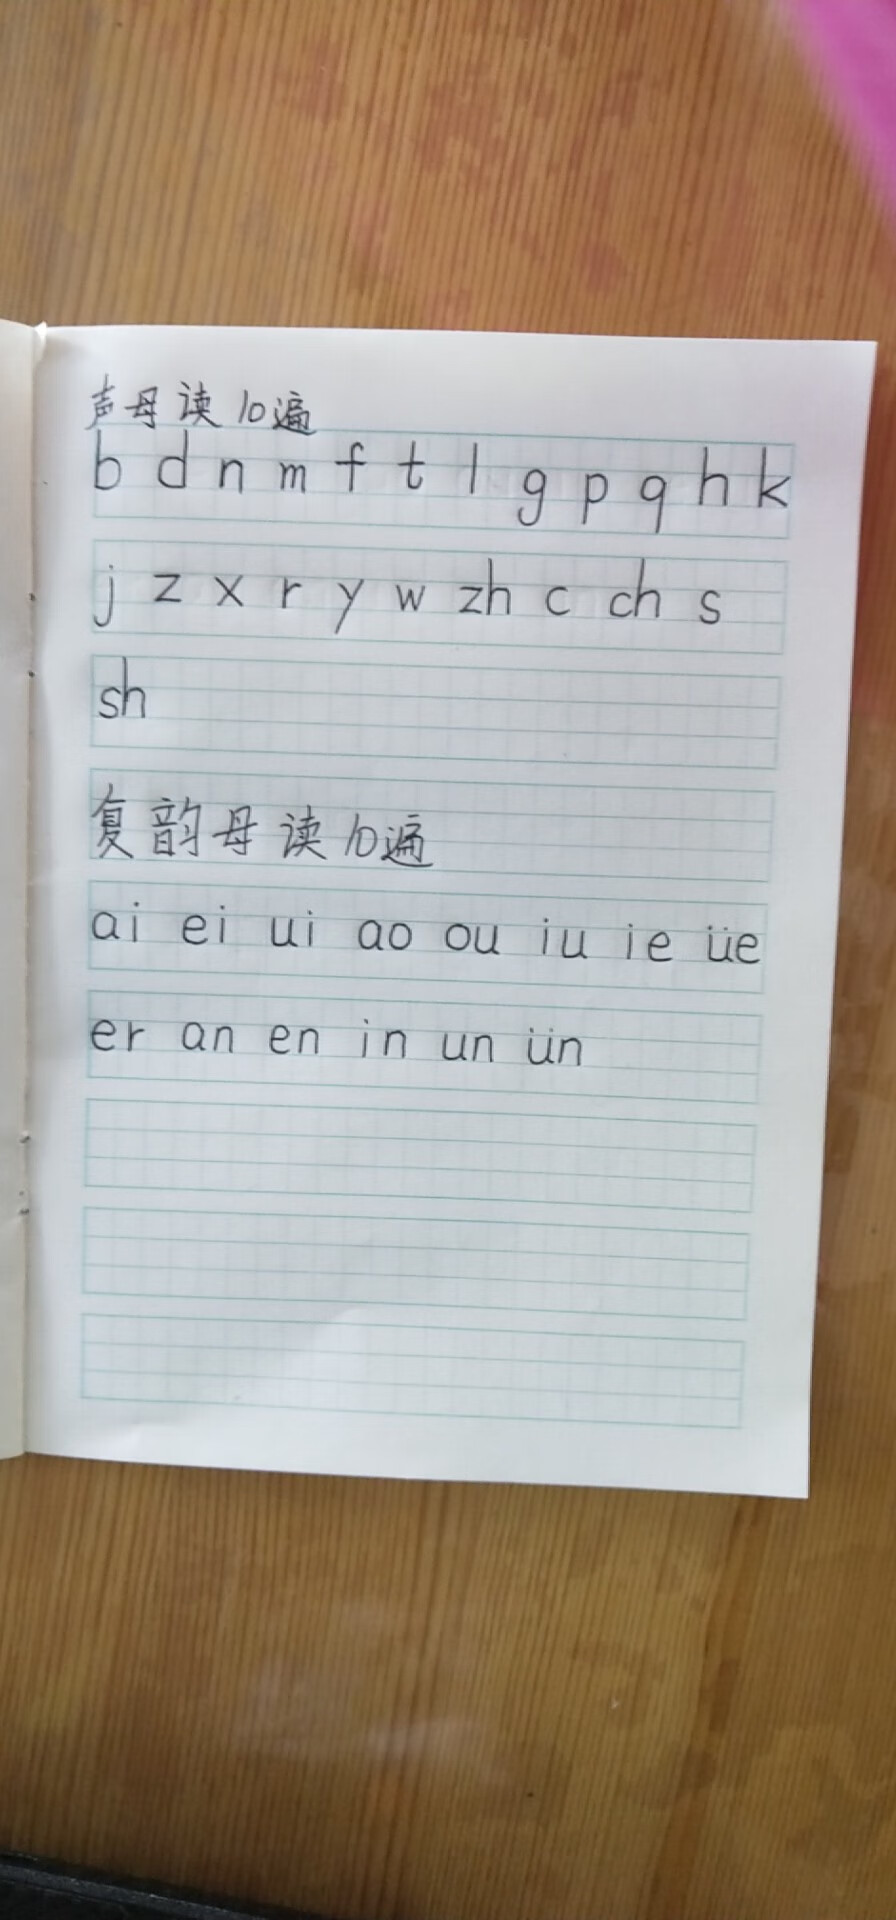 声母读10遍
b d n m f t l g p q h k
j z x r y w zh c ch s
sh
复韵母读10遍
ai ei ui ao ou iu ie üe
er an en in un ün